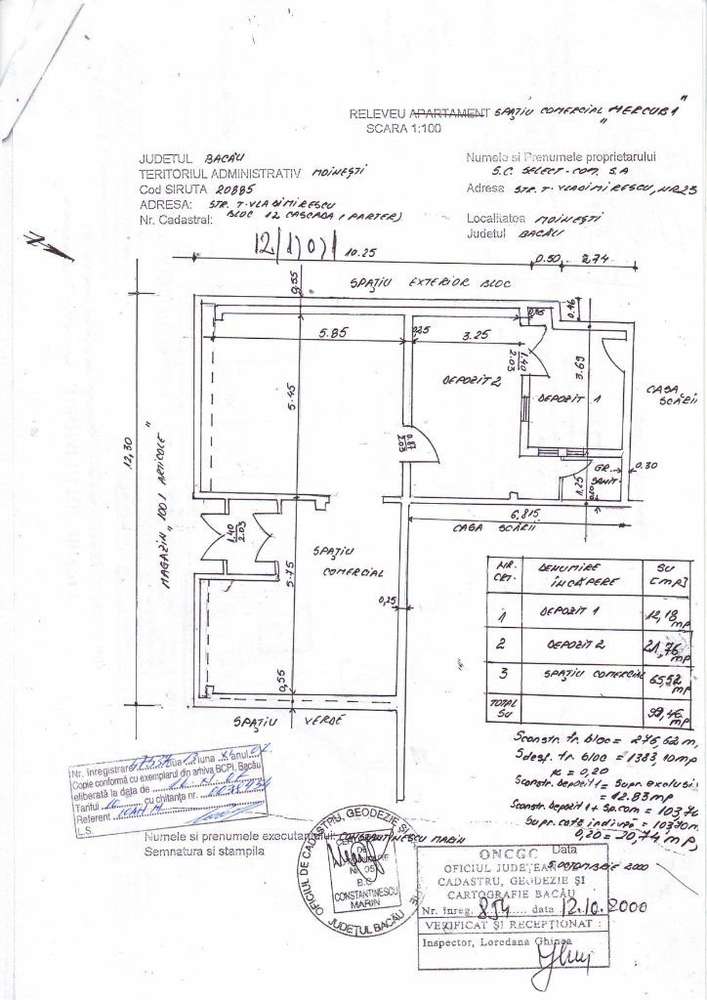 RELEVEU APARTAMENT SPAŢIU COMERCIAL „MERCUR 1"
SCARA 1:100
JUDETUL BACĂU
TERITORIUL ADMINISTRATIV MOINEŞTI
Cod SIRUTA 20885
ADRESA: STR. T. VLADIMIRESCU
Nr. Cadastral: BLOC 12 CASCADA (PARTER)
Numele si Prenumele proprietarului
S.C. SELECT-COM. S.A
Adresa STR. T. VLADIMIRESCU, NR 23
Localitatea MOINEŞTI
Judetul BACĂU
12/1/0/1
10.25
0.50 2.74
0.55
SPAŢIU EXTERIOR BLOC
0.46
5.85
0.25
3.25
1.40
2.03
3.69
DEPOZIT 2
DEPOZIT 1
CASA
SCĂRII
5.45
0.87
2.03
12,30
MAGAZIN „1001 ARTICOLE"
GR.
SANIT.
1.25
0.30
6,815
CASA SCĂRII
1.40
2.03
SPAŢIU
COMERCIAL
5.75
0,25
0,55
SPAŢIU VERDE
NR. CRT. DENUMIRE ÎNCĂPERE SU [MP]
1 DEPOZIT 1 12,18 mp
2 DEPOZIT 2 21,76 mp
3 SPAŢIU COMERCIAL 65,52 mp
TOTAL SU 99,46 mp
Sconstr. tr. bloc = 276,62 m,
Sdesf. tr. bloc = 1383,10 mp
K = 0,20
Sconstr. depozit 1 = Supr. exclusi
= 12.83 mp
Sconstr. depozit 1 + Sp. com = 103,70
Supr. cotă indiviză = 103,70 m
0,20 = 20,74 mp,
Nr. înregistrare ziua luna anul
Copie conformă cu exemplarul din arhiva BCPI, Bacău
eliberată la data de
Tariful cu chitanţa nr.
Referent
L.S.
Numele si prenumele executantului: CONSTANTINESCU MARIN
Semnatura si stampila
Data
5 OCTOMBRIE 2000
OFICIUL DE CADASTRU, GEODEZIE ŞI
JUDEŢUL BACĂU
CONSTANTINESCU
MARIN
ONCGC
OFICIUL JUDEŢEAN
CADASTRU, GEODEZIE ŞI
CARTOGRAFIE BACĂU
Nr. înreg. 854 data 12.10.2000
VERIFICAT ŞI RECEPŢIONAT :
Inspector, Loredana Ghinea